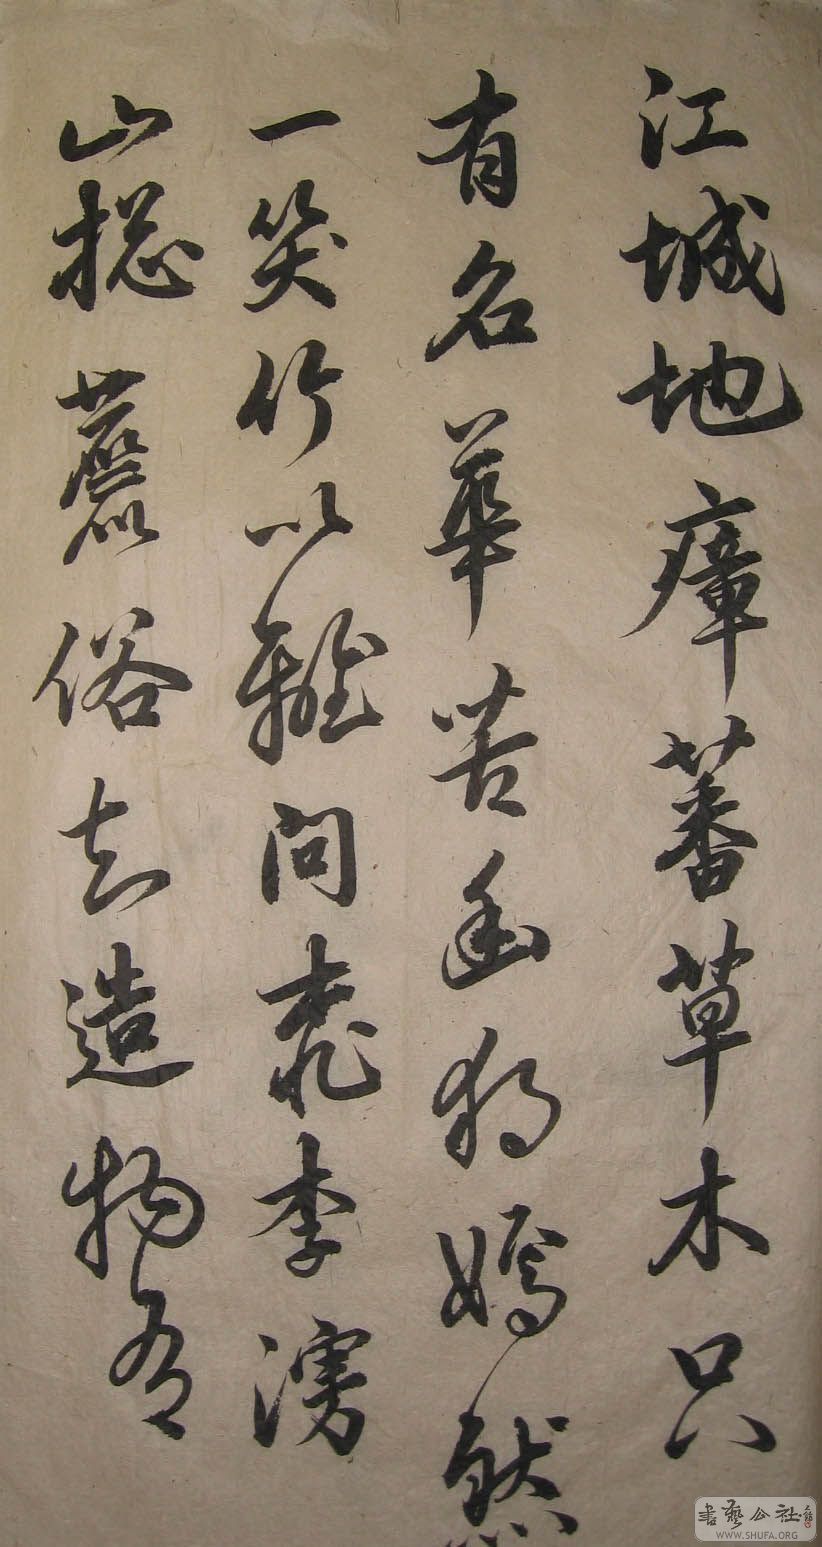 江城地瘴蕃草木只
有名華苦幽独嫣然
一笑竹以雜問桃李漫
山揔麄俗知造物有
書藝公社
WWW.SHUFA.ORG